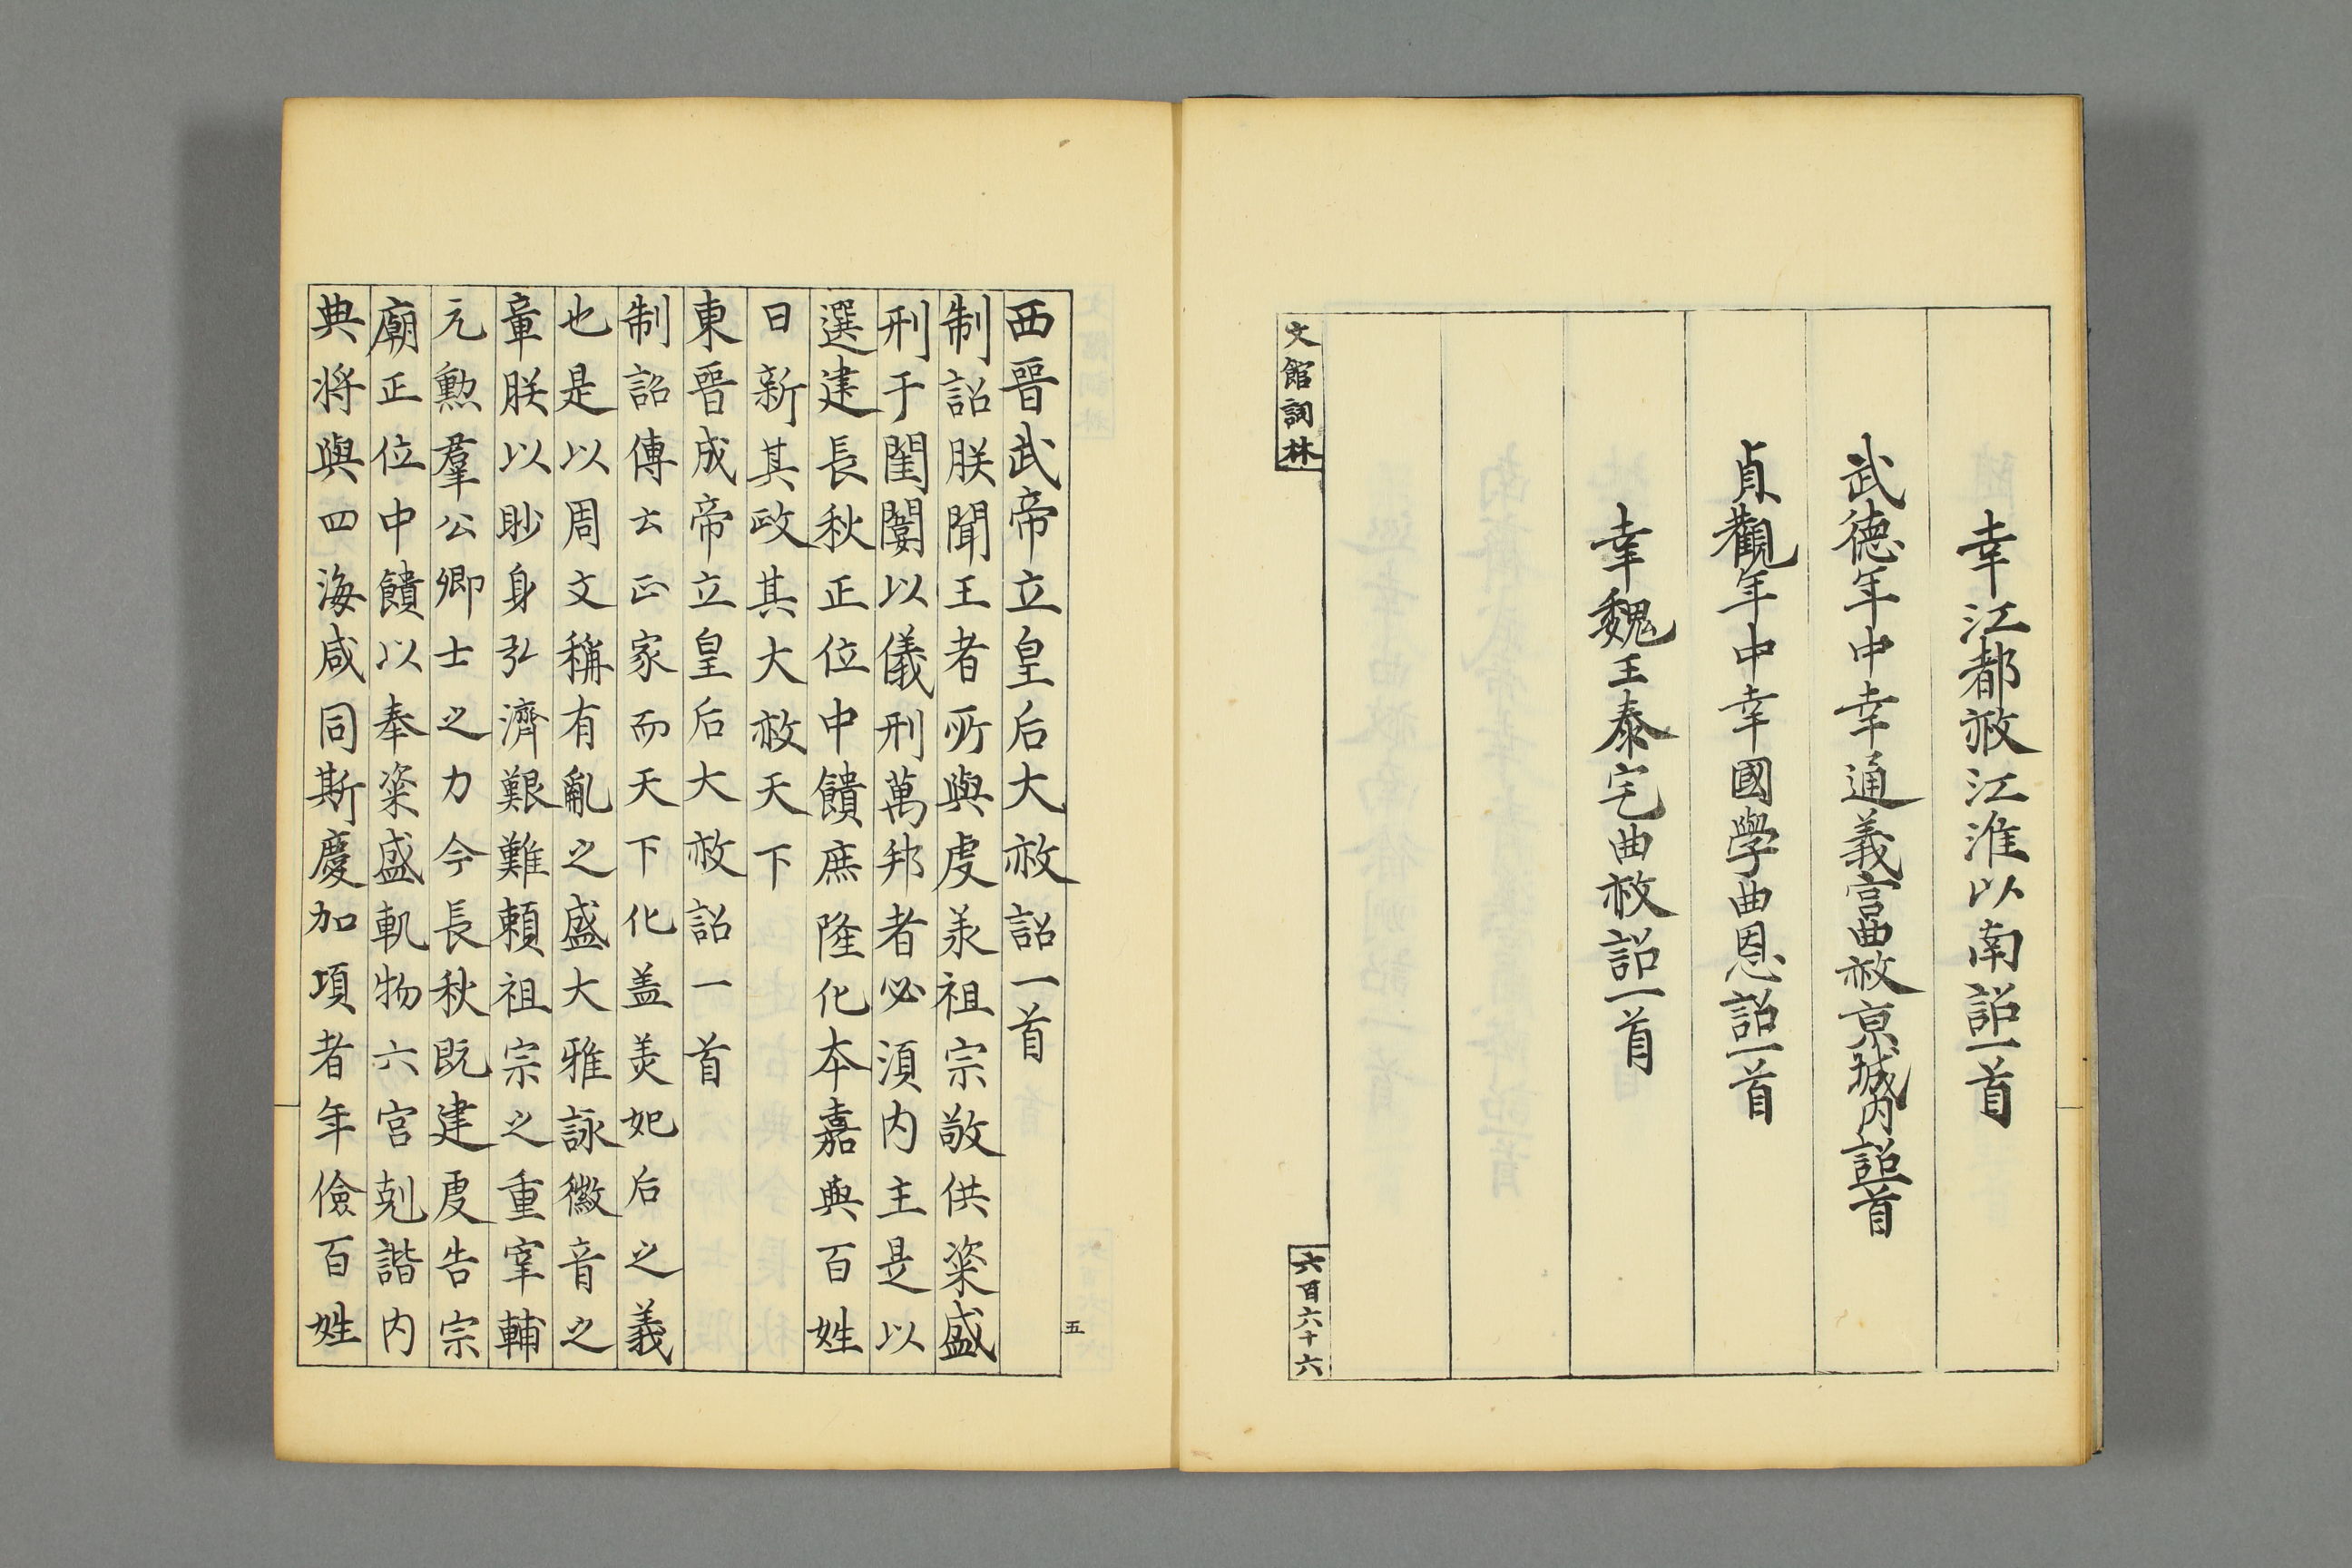 幸江都赦江淮以南詔一首
武德年中幸通義宮曲赦京城內詔一首
貞觀年中幸國學曲恩詔一首
幸魏王泰宅曲赦詔一首
文館詞林
六百六十六
五
西晉武帝立皇后大赦詔一首
制詔朕聞王者所與虔羕祖宗敬供粢盛
刑于閨闈以儀刑萬邦者必湏内主是以
選建長秋正位中饋庶隆化夲嘉與百姓
日新其政其大赦天下
東晉成帝立皇后大赦詔一首
制詔傳云正家而天下化盖美妃后之義
也是以周文稱有亂之盛大雅詠徽音之
章朕以眇身弘濟艱難頼祖宗之重宰輔
元勲羣公卿士之力今長秋既建虔告宗
廟正位中饋以奉粢盛軌物六宮剋諧内
典将與四海咸同斯慶加項者年儉百姓